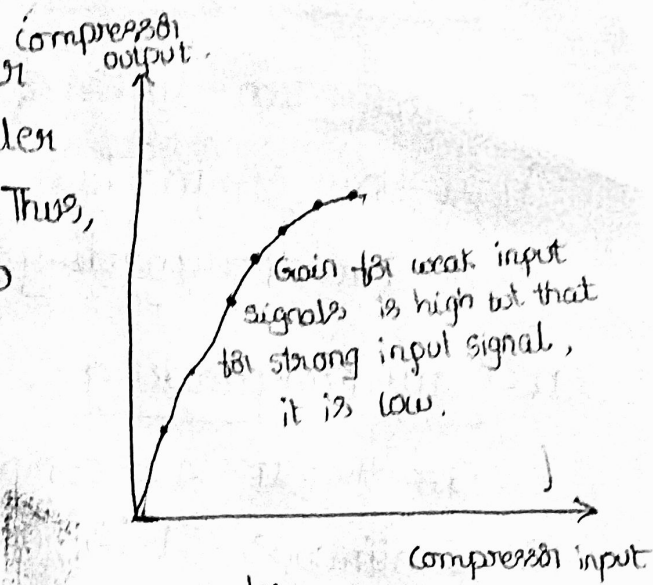 Compressor
output.
r
ler
Thus,
Gain for weak input
signals is high but that
for strong input signal,
it is low.
Compressor input